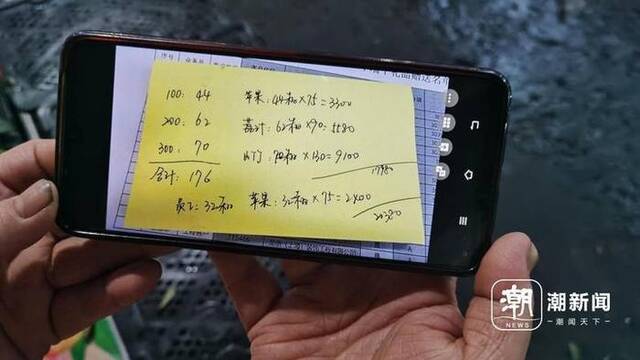 序号
礼品赠送名
100: 44 苹果: 44箱×75=3300
200: 62 62箱×90=5580
300: 70 70箱×130=9100
17980
合计: 176
员工: 32箱 苹果: 32箱×75=2400
20380
潮 潮新闻
NEWS 潮闻天下